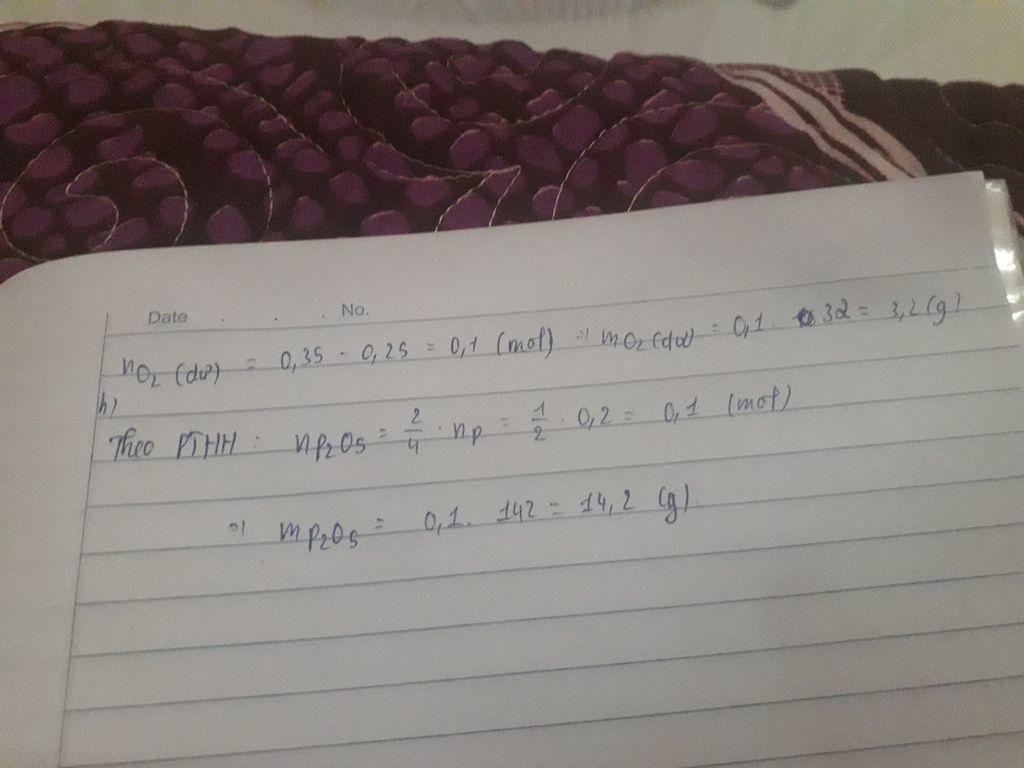 Date . . . No.
nO₂ (dư) = 0,35 - 0,25 = 0,1 (mol) => mO₂ (dư) = 0,1 . 32 = 3,2 (g)
b)
Theo PTHH : nP₂O₅ = 2/4 . nP = 1/2 . 0,2 = 0,1 (mol)
=> mP₂O₅ = 0,1 . 142 = 14,2 (g).